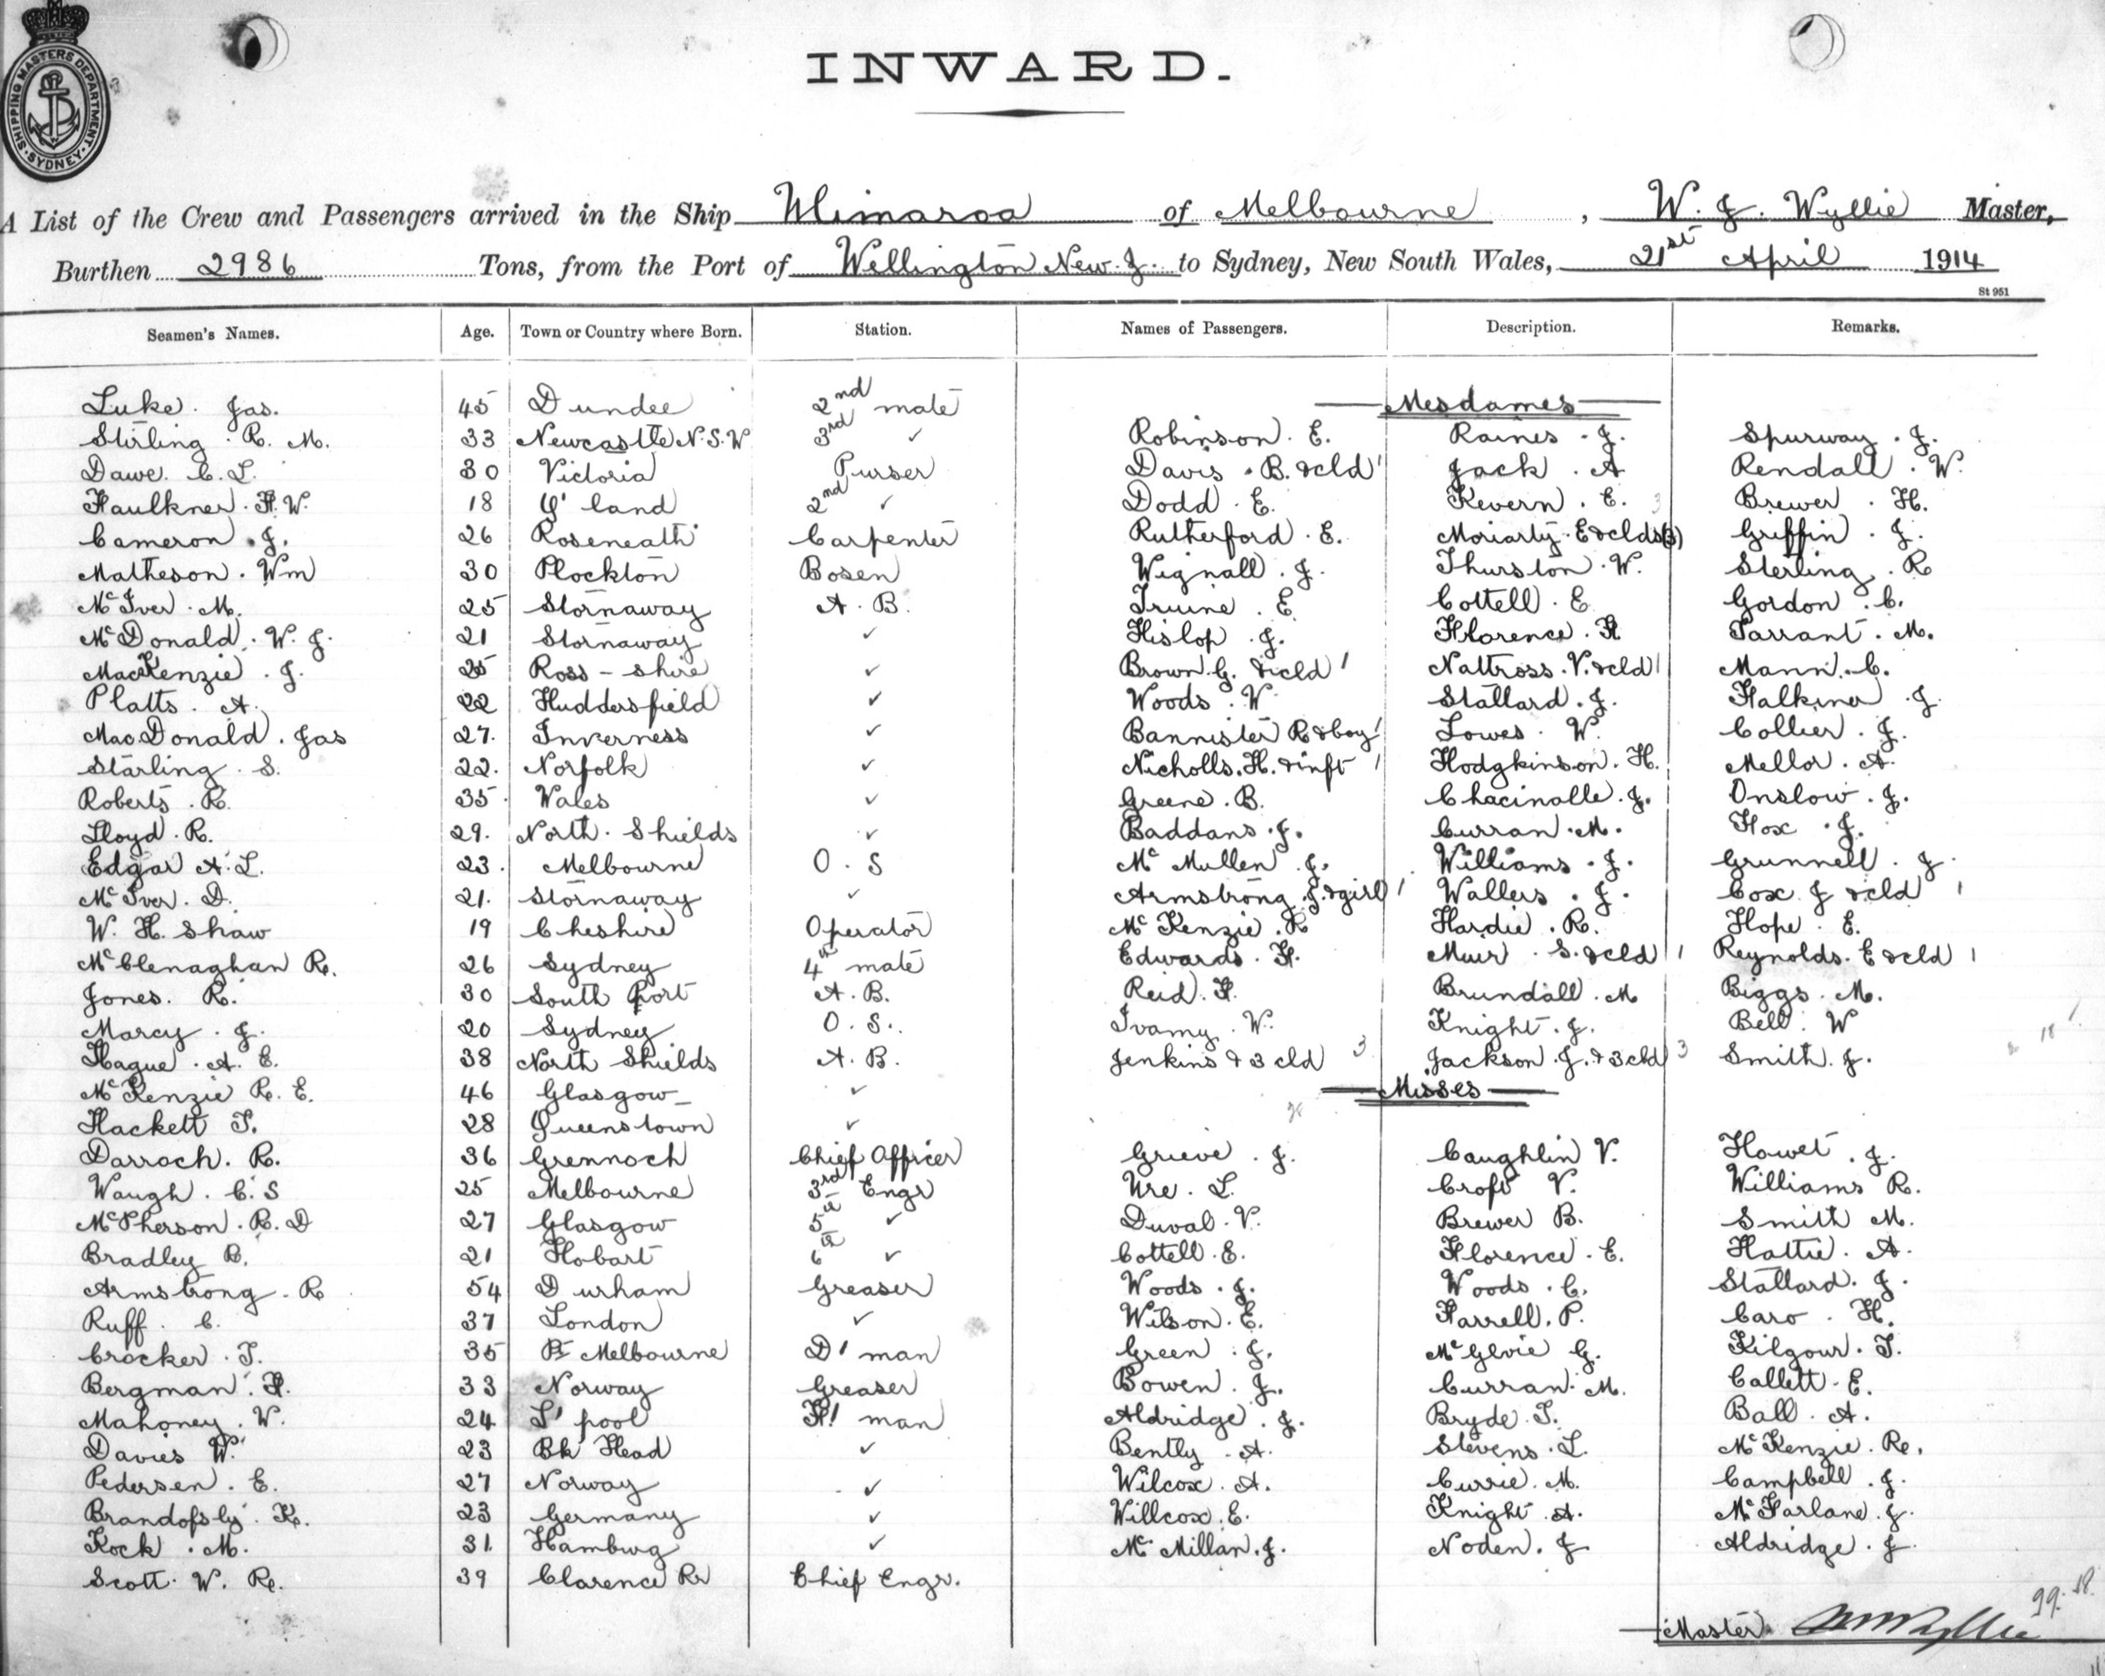 SHIPPING MASTERS DEPARTMENT SYDNEY
INWARD.
A List of the Crew and Passengers arrived in the Ship Ulimaroa of Melbourne, W. J. Wyllie Master,
Burthen 2986 Tons, from the Port of Wellington New. Z. to Sydney, New South Wales, 21st April 1914
St 951
Seamen's Names. Age. Town or Country where Born. Station. Names of Passengers. Description. Remarks.
Luke. Jas. 45 Dundee 2nd mate Mesdames
Stirling. R. M. 33 Newcastle N.S.W 3rd ✓ Robinson. E. Raines. J. Spurway. J.
Dawe. C. L. 30 Victoria Purser Davis. B. & cld 1 Jack. A Rendall. W.
Faulkner. F. W. 18 Q' land 2nd ✓ Dodd. E. Kevern. E. 3 Brewer. H.
Cameron. J. 26 Roseneath Carpenter Rutherford. E. Moriarty. E & clds (3) Griffin. J.
Matheson. Wm 30 Plockton Bosen Wignall. J. Thurston. W. Sterling. R
McIver. M. 25 Stornaway A. B. Irvine. E Cottell. E. Gordon. C.
McDonald. W. J. 21 Stornaway ✓ Hislop. J. Florence. F Tarrant. M.
MacKenzie. J. 25 Ross-shire ✓ Brown. G. & cld 1 Nattross. V. & cld 1 Mann. C.
Platts. A. 22 Huddersfield ✓ Woods. W. Stallard. J. Falkiner. J.
MacDonald. Jas 27. Inverness ✓ Bannister R & boy 1 Lowes. W. Collier. J.
Starling. S. 22. Norfolk ✓ Nicholls. H. & inft 1 Hodgkinson. H. Mellor. A.
Roberts. R. 35. Wales ✓ Greene. B. Chacinolle. J. Onslow. J.
Lloyd. R. 29. North. Shields ✓ Baddans. J. Curran. M. Fox. J.
Edgar A. L. 23. Melbourne O. S Mc Mullen. J. Williams. J. Grunnell. J.
McIver. D. 21. Stornaway ✓ Armstrong. J. & girl 1 Wallers. J. Cox J & cld 1
W. H. Shaw 19 Cheshire Operator Mc Kenzie. R Hardie. R. Hope. E.
McClenaghan R. 26 Sydney 4th mate Edwards. F. Muir. S. & cld 1 Reynolds. E & cld 1
Jones. R. 30 South Port A. B. Reid. F. Brundall. M Biggs. M.
Marcy. J. 20 Sydney O. S. Ivamy. W. Knight. J. Bell. W
Hague. A. E. 38 North Shields A. B. Jenkins & 3 cld 3 Jackson. J. & 3 cld 3 Smith. J.
McKenzie R. E. 46 Glasgow ✓ Misses
Hackett T. 28 Queenstown ✓
Darroch. R. 36 Grennoch Chief Officer Grieve. J. Caughlin V. Howet. J.
Waugh. C. S 25 Melbourne 3rd Engr Ure. L. Croft V. Williams R.
McPherson. R. D 27 Glasgow 5th ✓ Duval. V. Brewer B. Smith M.
Bradley B. 21 Hobart 6th ✓ Cottell. E. Florence. E. Hattie. A.
Armstrong. R 54 Durham Greaser Woods. J. Woods. C. Stallard. J.
Ruff. C. 37 London ✓ Wilson. E. Farrell. P. Caro. H.
Crocker. T. 35 Pt Melbourne D' man Green. J. McGlvie G. Kilgour. T.
Bergman. F. 33 Norway Greaser Bowen. J. Curran. M. Callett. E.
Mahoney. W. 24 L' pool F' man Aldridge. J. Bryde. T. Ball. A.
Davies W. 23 Bk Head ✓ Bently. A. Stevens. L. McKenzie. Re.
Pedersen. E. 27 Norway ✓ Wilcox. A. Currie. M. Campbell. J.
Brandofsly. K. 23 Germany ✓ Willcox. E. Knight. A. McFarlane. J.
Kock. M. 31. Hamburg ✓ Mc Millan. J. Noden. J Aldridge. J
Scott. W. Re. 39 Clarence Rr Chief Engr.
99. 18.
Master W J Wyllie